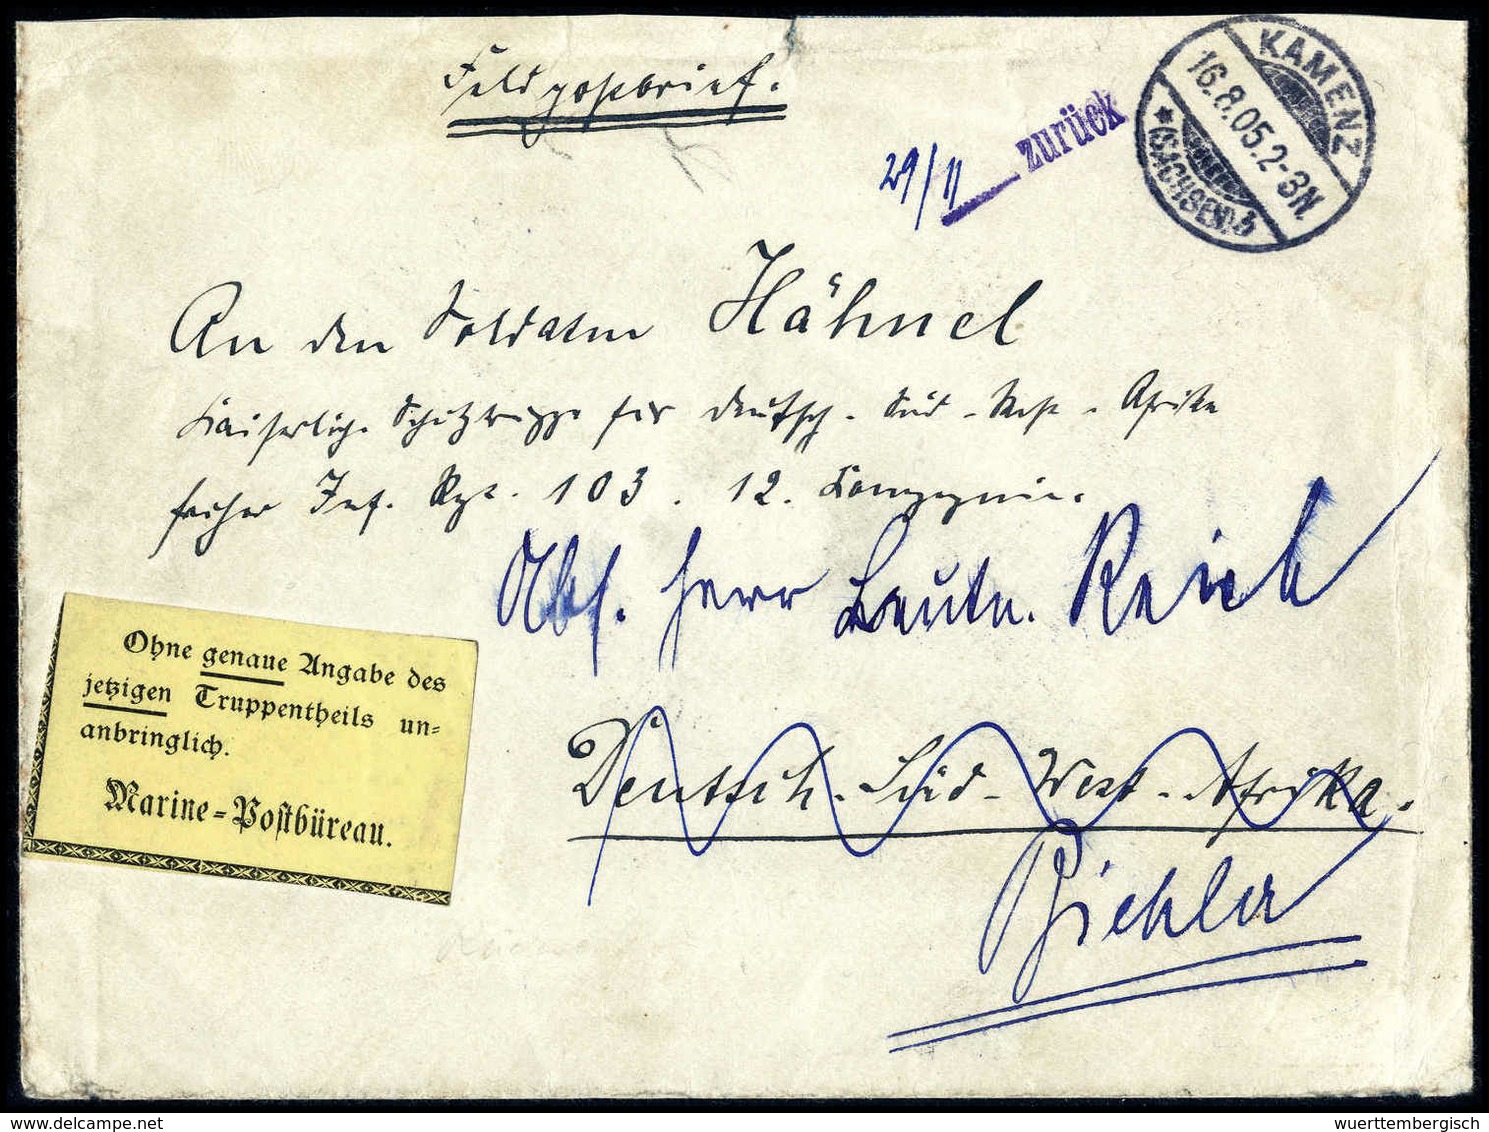 Feldpostbrief.
29/11 zurück
KAMENZ
16.8.05.2-3N.
* (SACHSEN) b
An den Soldaten Hähnel
Kaiserliche Schutztruppe für Deutsch-Süd-West-Afrika
früher Inf. Rgt. 103. 12. Kompagnie.
Abs. Herr Leutn.
Ohne genaue Angabe des
jetzigen Truppentheils un-
anbringlich.
Marine-Postbüreau.
Deutsch-Süd-West-Afrika.
Biehla
delcampe.net
wuerttembergisch